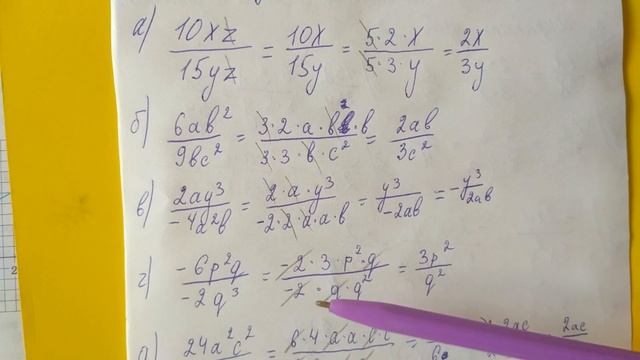 а) 10xz/15yz = 10x/15y = 5·2·x/5·3·y = 2x/3y
б) 6ab²/9bc² = 3·2·a·b·b/3·3·b·c² = 2ab/3c²
в) 2ay³/-4a²b = 2·a·y³/-2·2·a·a·b = y³/-2ab = -y³/2ab
г) -6p²q/-2q³ = -2·3·p²·q/-2·q·q² = 3p²/q²
д) 24a²c²